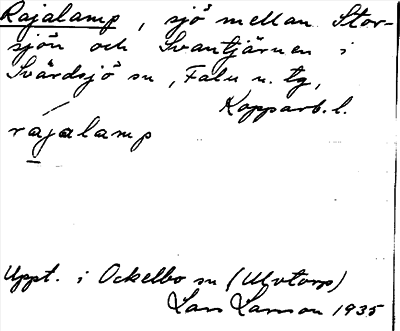 Rajalamp, sjö mellan Stor-
sjön och Svantjärnen i
Svärdsjö sn, Falu n. tg,
Kopparb. l.
rájalamp
Uppt. i Ockelbo sn (Ulvtorp)
Lars Larsson 1935